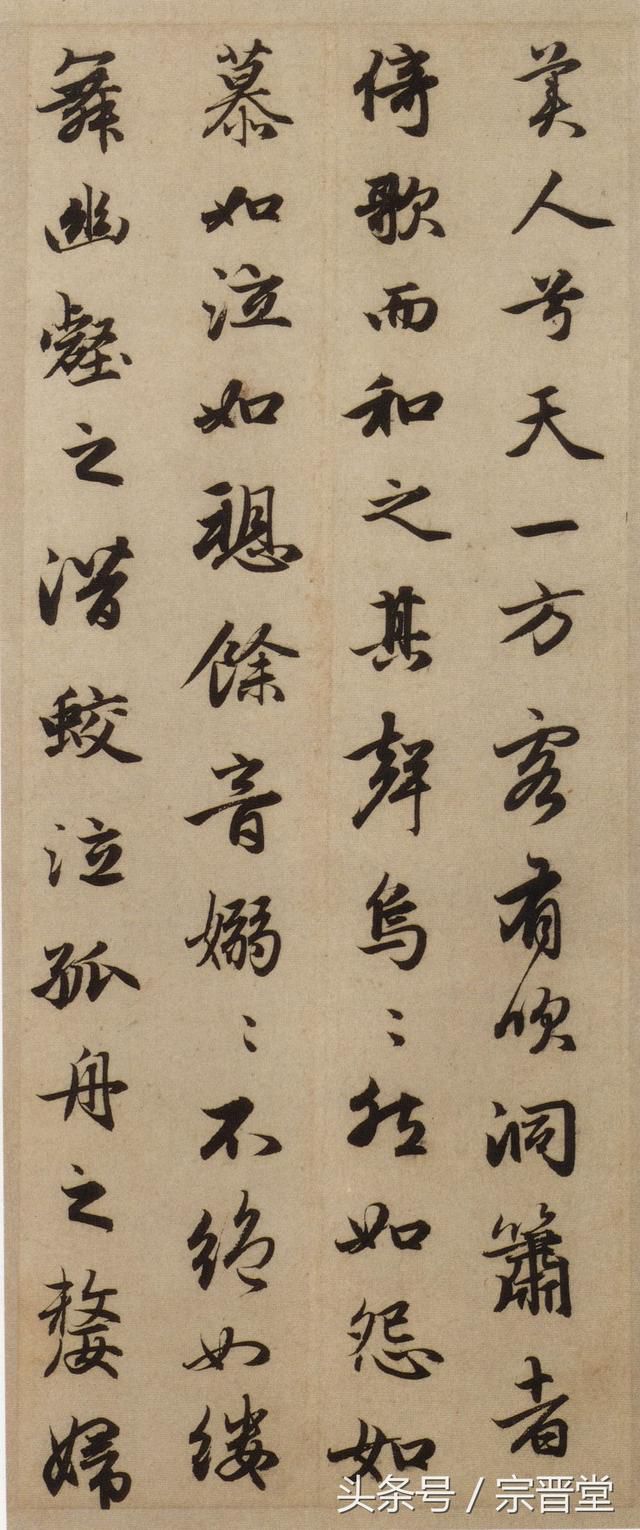 美人兮天一方客有吹洞簫者
倚歌而和之其聲烏〻然如怨如
慕如泣如愬餘音嫋〻不絕如縷
舞幽壑之潛蛟泣孤舟之嫠婦
头条号 / 宗晋堂